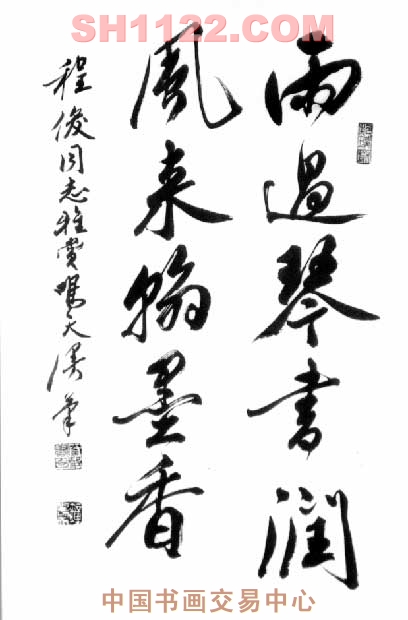 SH1122.COM
雨過琴書潤
風来翰墨香
程俊同志雅賞鳴天漫筆
中国书画交易中心